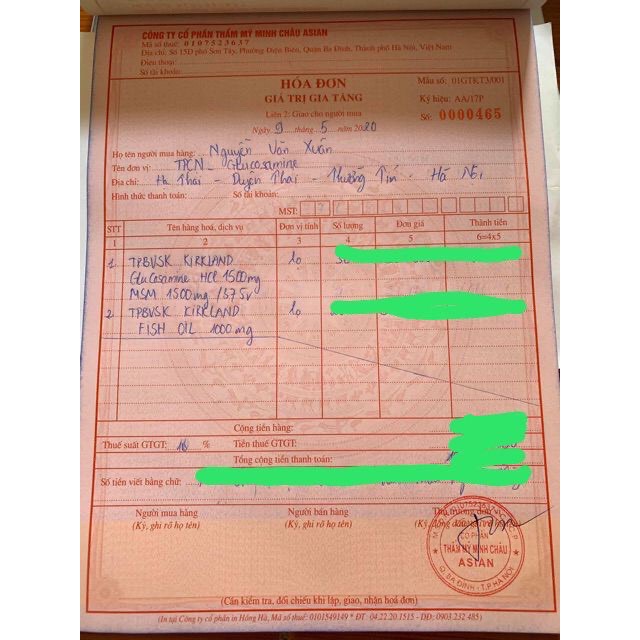 CÔNG TY CỔ PHẦN THẨM MỸ MINH CHÂU ASIAN
Mã số thuế: 0107523637
Địa chỉ: Số 15D phố Sơn Tây, Phường Điện Biên, Quận Ba Đình, Thành phố Hà Nội, Việt Nam
Điện thoại:
Số tài khoản:
HÓA ĐƠN
GIÁ TRỊ GIA TĂNG
Liên 2: Giao cho người mua
Ngày 9 tháng 5 năm 2020
Mẫu số: 01GTKT3/001
Ký hiệu: AA/17P
Số: 0000465
Họ tên người mua hàng: Nguyễn Văn Xuân
Tên đơn vị: TPCN - Glucosamine
Địa chỉ: Hà Thái - Duyên Thái - Thường Tín - Hà Nội
Hình thức thanh toán: Số tài khoản:
MST:
STT Tên hàng hoá, dịch vụ Đơn vị tính Số lượng Đơn giá Thành tiền
1 2 3 4 5 6=4x5
1 TPBVSK KIRKLAND lọ
Glucosamine HCl 1500mg
MSM 1500mg /375v
2 TPBVSK KIRKLAND lọ
FISH OIL 1000mg
Cộng tiền hàng:
Thuế suất GTGT: 10 % Tiền thuế GTGT:
Tổng cộng tiền thanh toán:
Số tiền viết bằng chữ:
Người mua hàng Người bán hàng Thủ trưởng đơn vị
(Ký, ghi rõ họ tên) (Ký, ghi rõ họ tên)
CỔ PHẦN
THẨM MỸ MINH CHÂU
ASIAN
Q. BA ĐÌNH - T.P HÀ NỘI
(Cần kiểm tra, đối chiếu khi lập, giao, nhận hoá đơn)
(In tại Công ty cổ phần in Hồng Hà, Mã số thuế: 0101549149 * ĐT: 04.22.20.1515 - DĐ: 0903 232 485)